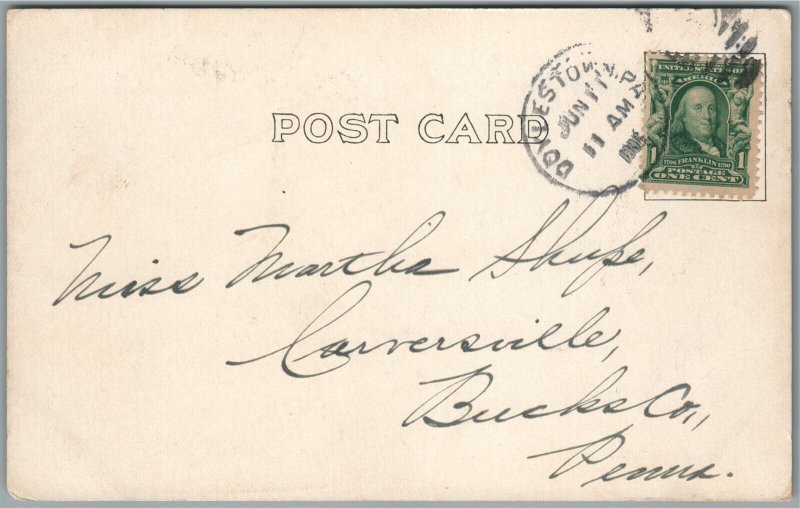 POST CARD
DOYLESTOWN, PA.
JUN 11
11 AM
UNITED STATES OF
AMERICA
1 1706 FRANKLIN 1790 1
POSTAGE
ONE CENT
Miss Martha
Carversville,
Bucks Co.,
Penna.